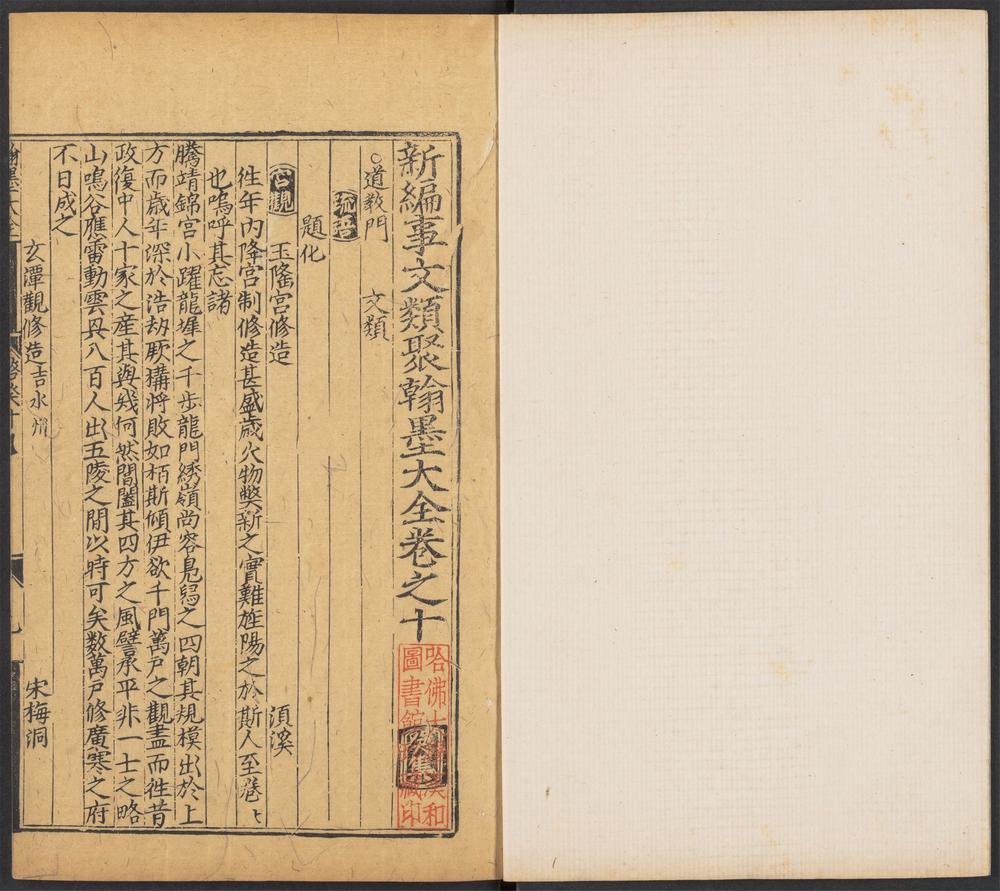 新編事文類聚翰墨大全卷之十
癸集
哈佛大學漢和圖書館珍藏印
○道教門　文類
疏語
題化
宮觀　玉隆宮修造　須溪
往年內降宮制修造甚盛歲久物弊新之實難旌陽之於斯人至卷〻
也嗚呼其忘諸
騰靖錦宮小躍龍墀之千步龍門綉嶺尚容鳬舄之四朝其規模出於上
方而歲年深於浩劫厥搆將敗如栢斯傾伊欲千門萬戶之觀盡而徃昔
政復中人十家之産其與㡬何然閶闔其四方之風譬承平非一士之略
山鳴谷應雷動雲毋八百人出五陵之間以時可矣数萬戶修廣寒之府
不日成之
玄潭觀修造吉水州　宋梅洞